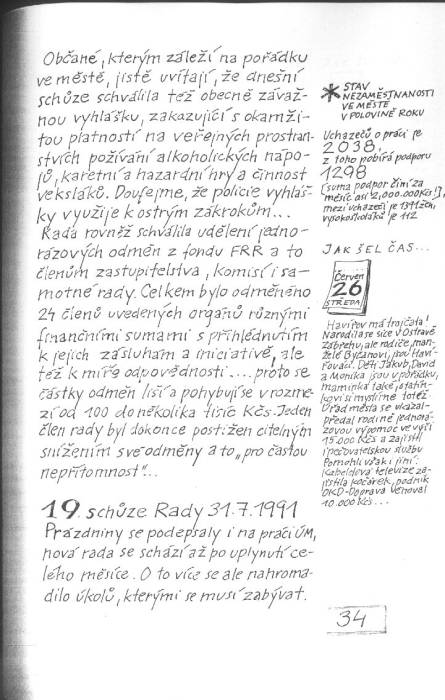 Občané, kterým záleží na pořádku
ve městě, jistě uvítají, že dnešní
schůze schválila též obecně závaž-
nou vyhlášku, zakazující s okamži-
tou platností na veřejných prostran-
stvích požívání alkoholických nápo-
jů, karetní a hazardní hry a činnost
veksláků. Doufejme, že policie vyhláš-
ky využije k ostrým zákrokům...
Rada rovněž schválila udělení jedno-
rázových odměn z fondu FRR a to
členům zastupitelstva, komisí i sa-
motné rady. Celkem bylo odměněno
24 členů uvedených orgánů různými
finančními sumami s přihlédnutím
k jejich zásluhám a iniciativě, ale
též k míře odpovědnosti.... proto se
částky odměn liší a pohybují se v rozme-
zí od 100 do několika tisíc Kčs. Jeden
člen rady byl dokonce postižen citelným
snížením své odměny a to „pro častou
nepřítomnost"...
19. schůze Rady 31.7.1991
Prázdniny se podepsaly i na práci ÚM,
nová rada se schází až po uplynutí ce-
lého měsíce. O to více se ale nahroma-
dilo úkolů, kterými se musí zabývat.
* STAV
NEZAMĚSTNANOSTI
VE MĚSTĚ
V POLOVINĚ ROKU
Uchazečů o práci je
2038,
z toho pobírá podporu
1298
(suma podpor činí za
měsíc asi 2,000.000Kčs!),
mezi uchazeči je 1311 žen,
vysokoškoláků je 112
JAK ŠEL ČAS...
Červen
26
STŘEDA
Havířov má trojčata!
Narodila se sice v Ostravě
Zábřehu, ale rodiče, man-
želé Byčanovi, jsou Haví-
řováci. Děti Jakub, David
a Monika jsou v pořádku,
maminka také, i tatín-
kovi si myslíme totéž.
Úřad města se ukázal-
předal rodině jednorá-
zovou výpomoc ve výši
15.000 Kčs a zajistil
i pečovatelskou službu
Pomohli však i jiní.
Kabelová televize za-
jistila kočárek, podnik
OKD-Doprava věnoval
10.000 Kčs...
34